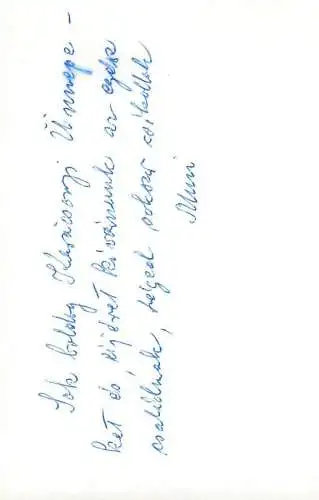 Sok boldog Karácsonyi Ünnepe-
ket és újévet kívánunk az egész
családnak, téged sokszor csókollak
Muni